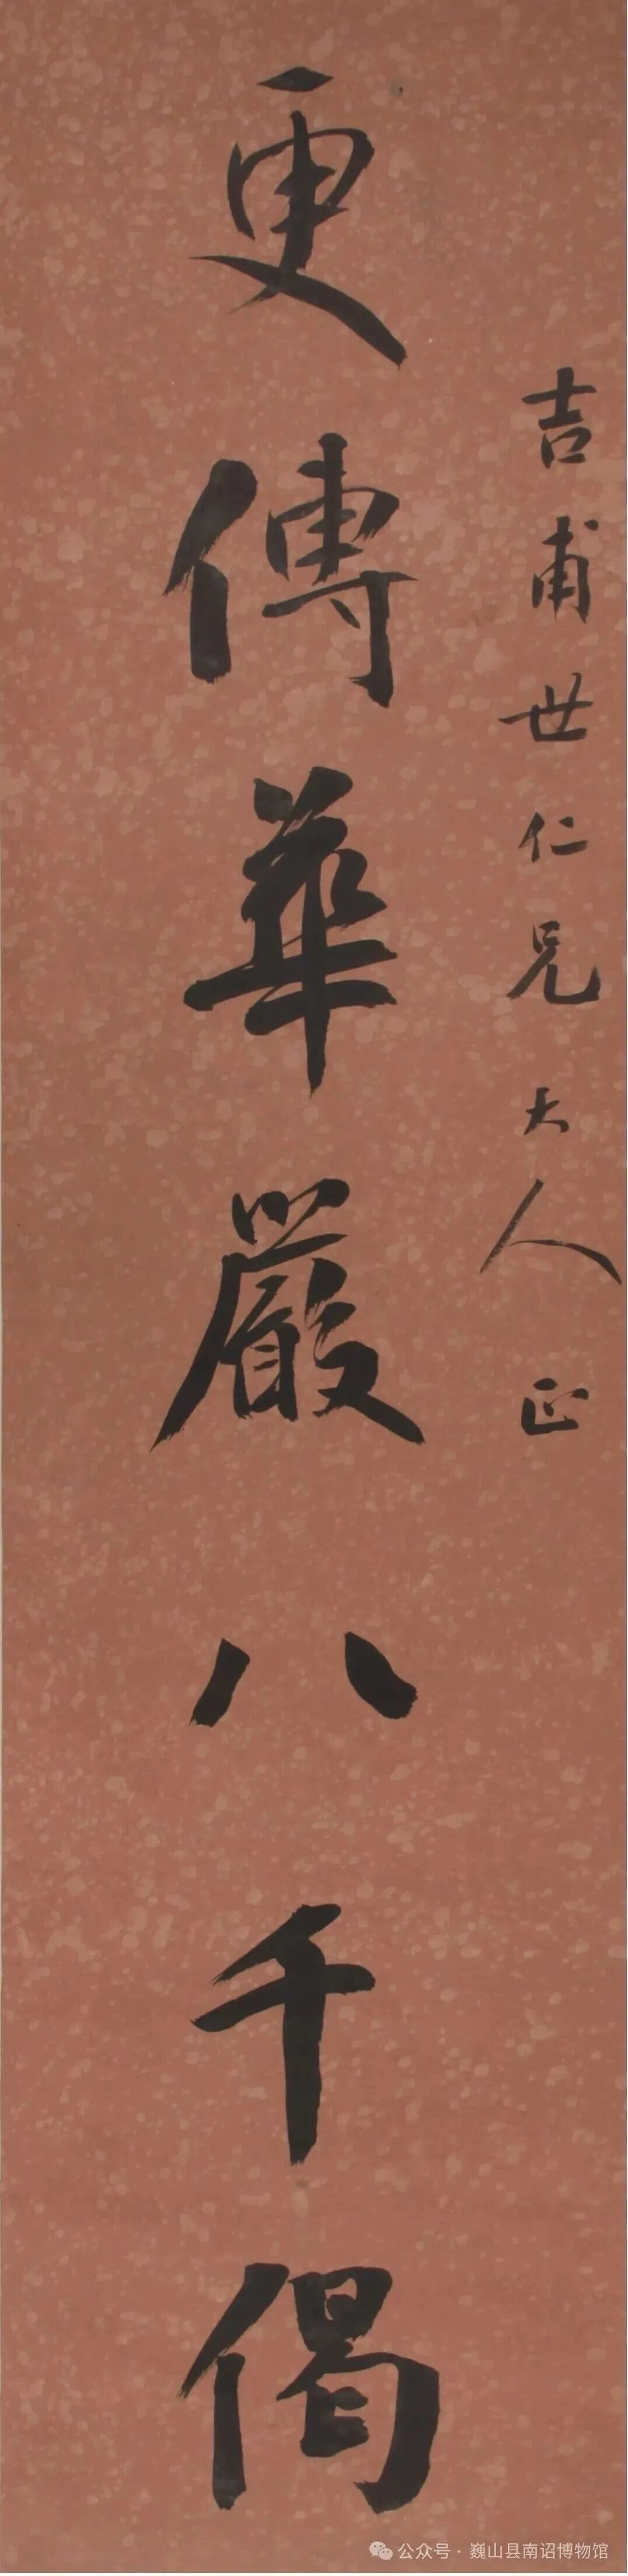 吉甫世仁兄大人正
更傳華嚴八千偈
公众号 · 巍山县南诏博物馆